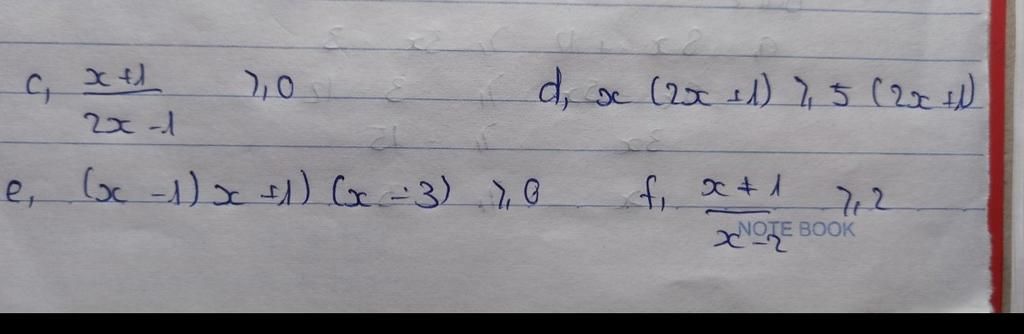 c, x+1/2x-1 ≥ 0 d, x (2x+1) ≥ 5 (2x+1)
e, (x-1)x+1) (x-3) ≥ 0 f, x+1/x-2 ≥ 2
NOTE BOOK